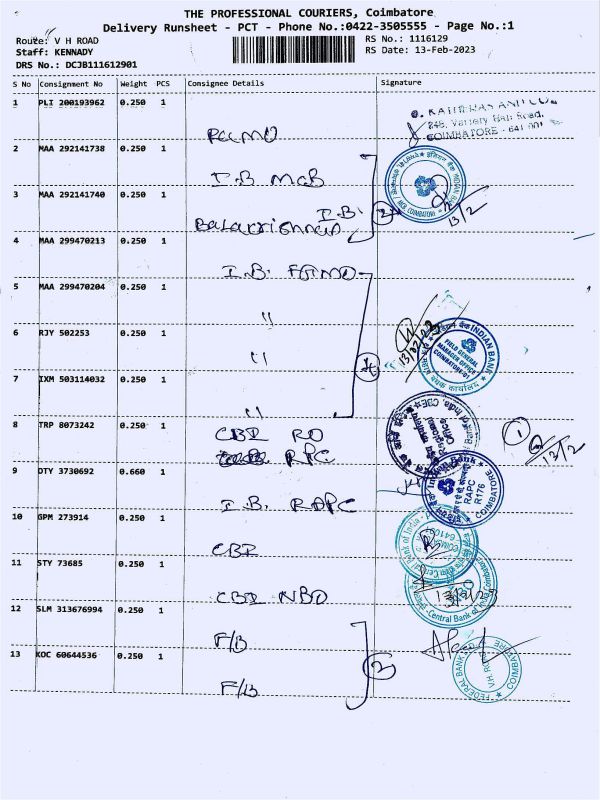 THE PROFESSIONAL COURIERS, Coimbatore
Delivery Runsheet - PCT - Phone No.:0422-3505555 - Page No.:1
Route: V H ROAD
RS No.: 1116129
Staff: KENNADY
RS Date: 13-Feb-2023
DRS No.: DCJB111612901
S No Consignment No Weight PCS Consignee Details Signature
1 PLI 200193962 0.250 1
848, Variety Hall Road,
COIMBATORE - 641 001
2 MAA 292141738 0.250 1
I.B MCB
INDIAN BANK
MCB, COIMBATORE
13/2
3 MAA 292141740 0.250 1
I.B.
2
4 MAA 299470213 0.250 1
I.B. FGMO
5 MAA 299470204 0.250 1
"
6 RJY 502253 0.250 1
"
13/02/23
INDIAN BANK
FIELD GENERAL
MANAGER OFFICE
COIMBATORE-01
7 IXM 503114032 0.250 1
4
"
8 TRP 8073242 0.250 1
CBI RO
RPC
Regional
Office
1
13/2
9 DTY 3730692 0.660 1
I.B. RAPC
Indian Bank
RAPC
R176
COIMBATORE
10 GPM 273914 0.250 1
CBI
Central Bank of India
11 STY 73685 0.250 1
CBI NBO
Central Bank of India Coimbatore
12 SLM 313676994 0.250 1
F/B
2
13 KOC 60644536 0.250 1
F/B
FEDERAL BANK
V.H. ROAD
COIMBATORE